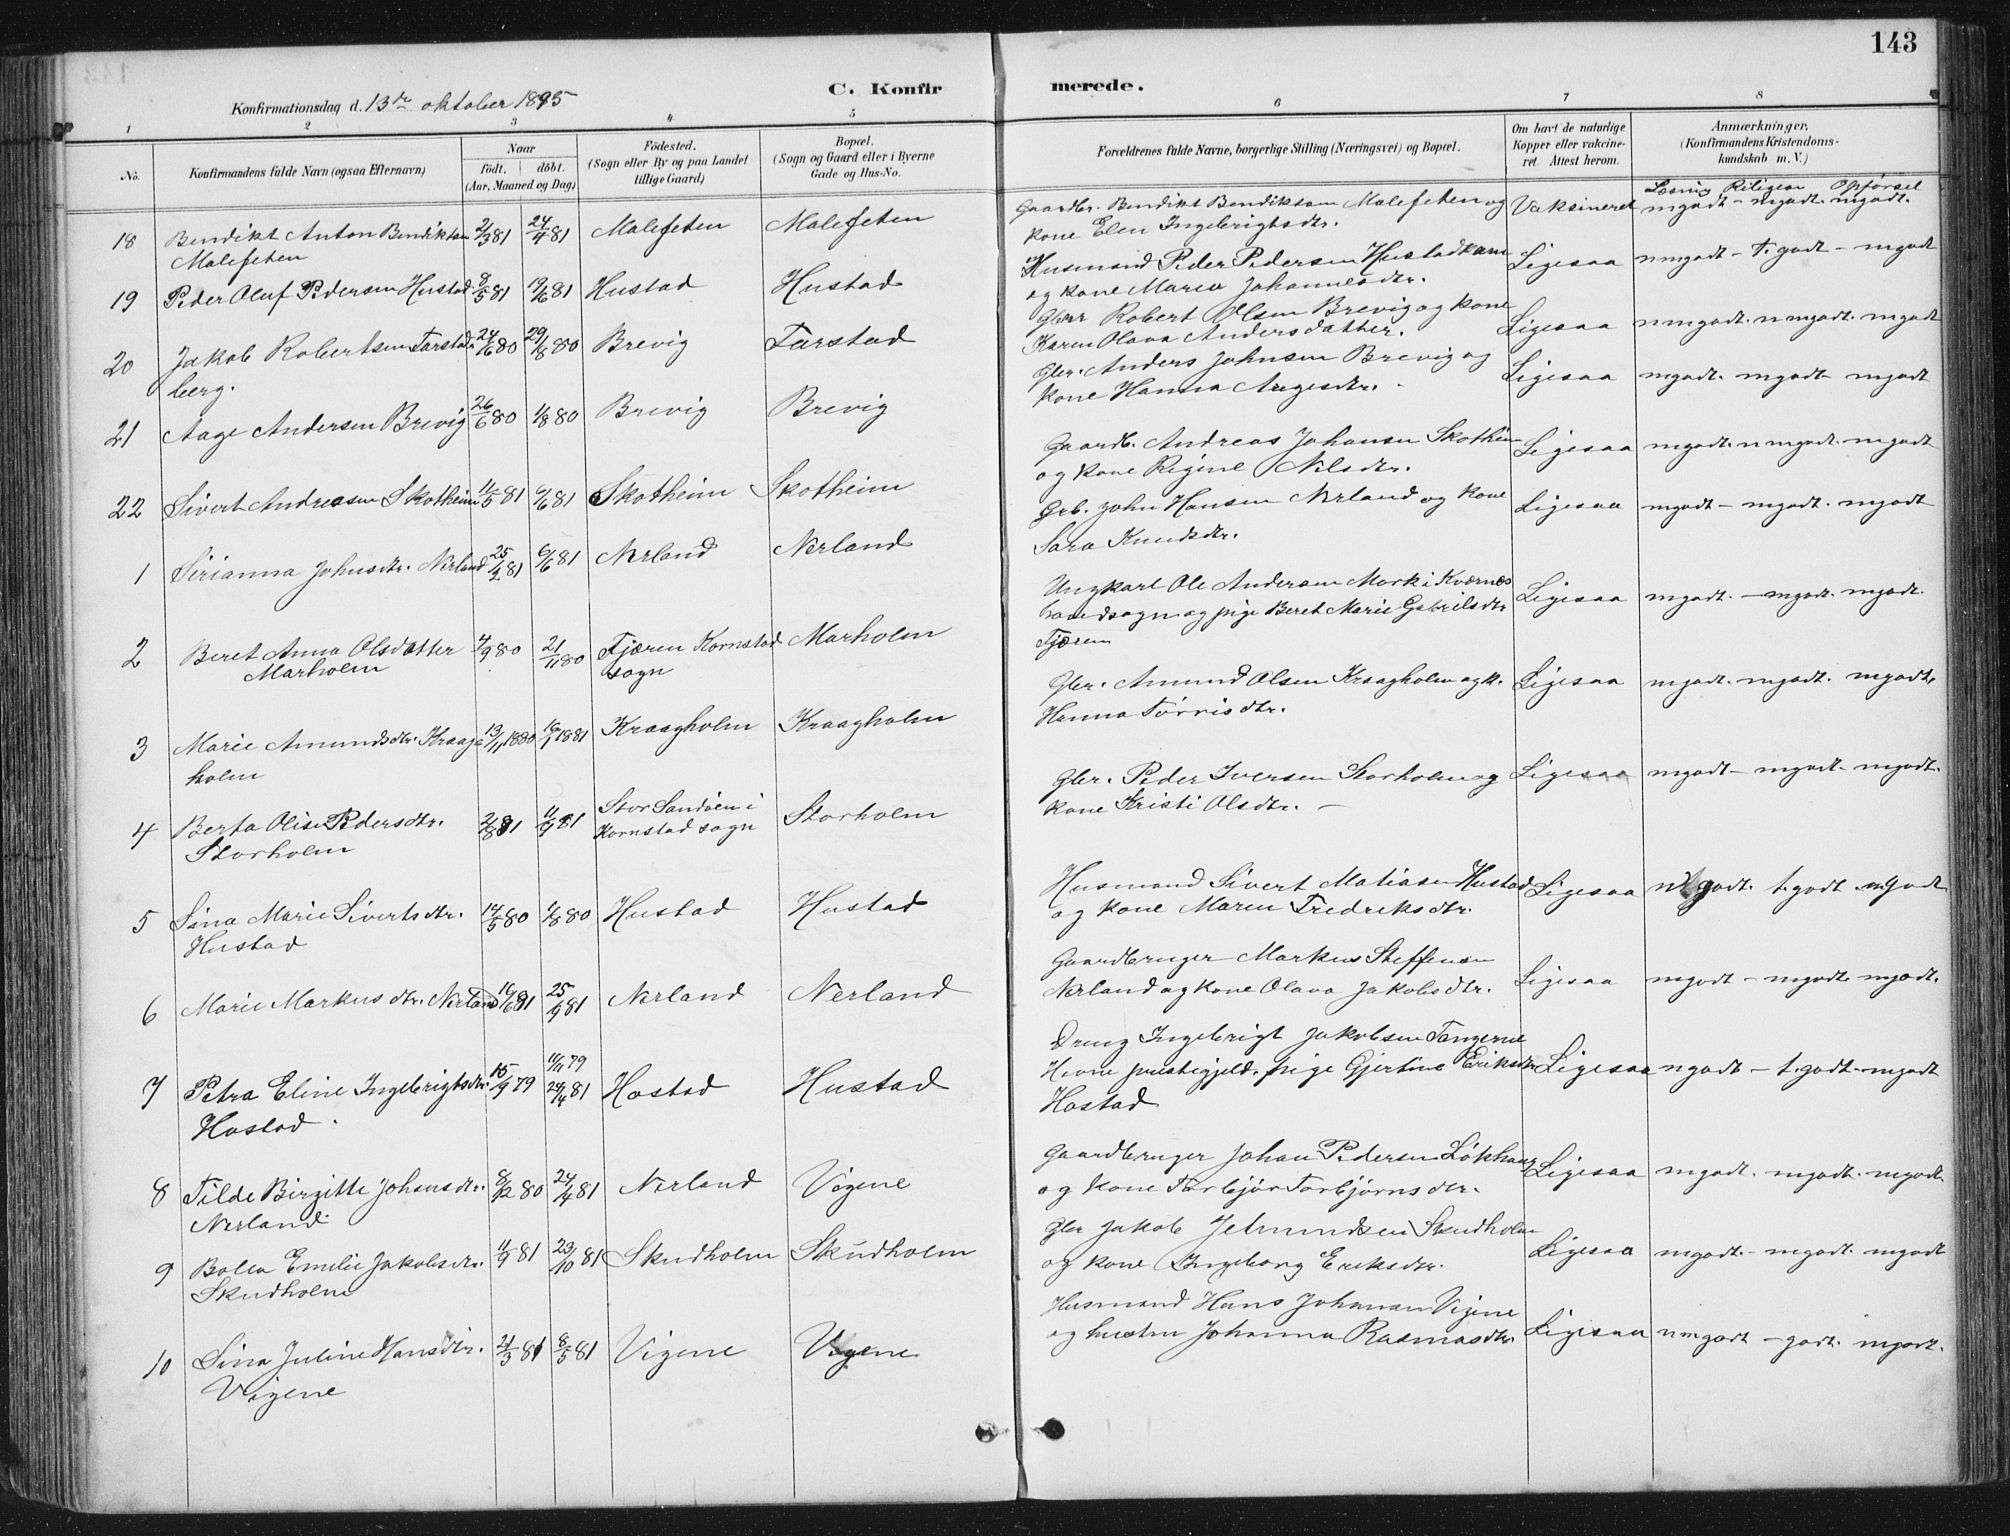 143
C. Konfirmerede.
Konfirmationsdag d. 13de oktober 1895
1 2 3 4 5 6 7 8
No.
Konfirmandens fulde Navn (ogsaa Efternavn)
Naar
födt. döbt.
(Aar, Maaned og Dag)
Födested.
(Sogn eller By og paa Landet
tillige Gaard)
Bopæl.
(Sogn og Gaard eller i Byerne
Gade og Hus-No.
Forældrenes fulde Navne, borgerlige Stilling (Næringsvei) og Bopæl.
Om havt de naturlige
Kopper eller vakcine-
ret. Attest herom.
Anmærkninger.
(Konfirmandens Kristendoms-
kundskab m. V.)
Læsning Religion Opførsel
18 Bendikt Anton Bendiktsen 2/3 81 24/4 81 Malefeten Malefeten Gaardbr. Bendikt Bendiktsen Malefeten og Vaksineret mgodt - mgodt. mgodt.
Malefeten kone Elen Ingebrigtsdtr.
19 Peder Oluf Pedersen Hustad 8/5 81 19/6 81 Hustad Hustad Husmand Peder Pedersen Hustad Ligesaa nmgodt - t. godt - mgodt
og kone Maren Johannesdtr.
20 Jakob Robertsen Farstad 24/6 80 29/8 80 Brevig Farstad Gbr Robert Olsen Brevig og kone Ligesaa nmgodt. nmgodt. mgodt
berg. Karen Olava Andersdatter.
21 Aage Andersen Brevig 26/6 80 1/8 80 Brevig Brevig Gbr. Anders Johnsen Brevig og Ligesaa mgodt. mgodt - mgodt
kone Hanna Aagesdtr.
22 Sivert Andreasen Skotheim 11/5 81 6/6 81 Skotheim Skotheim Gaardb. Andreas Johansen Skotheim Ligesaa mgodt. nmgodt. mgodt
og kone Regine Nilsdtr.
1 Sirianna Johnsdtr. Nerland 25/2 81 6/6 81 Nerland Nerland Grb. John Hansen Nerland og kone Ligesaa mgodt - mgodt. mgodt
Sara Knudsdtr.
2 Beret Anna Olsdatter 4/9 80 21/11 80 Fjæren Kornstad Marholm Ungkarl Ole Andersen Mork i Kværnes Ligesaa mgodt. - mgodt. mgodt.
Marholm sogn og pige Beret Marie Gabrielsdtr
Fjæren
3 Marie Amundsdtr. Kraag 13/11 1880 16/1 1881 Kraagholm Kraagholm Gbr. Amund Olsen Kraagholm og k. Ligesaa mgodt. mgodt. mgodt.
holm Hanna Tørrisdtr.
4 Berta Olise Pedersdtr. 2/8 81 11/9 81 Stor Sandöen i Storholm Gbr. Peder Iversen Storholm og Ligesaa mgodt - mgodt - mgodt.
Storholm Kornstad sogn kone Kristi Olsdtr. -
5 Sina Marie Sivertsdtr. 14/5 80 1/8 80 Hustad Hustad Husmand Sivert Matiasen Hustad Ligesaa godt. t. godt. mgodt
Hustad og kone Maren Fredriksdtr.
6 Marie Markusdtr. Nerland 16/6 81 25/9 81 Nerland Nerland Gaardbruger Markus Steffensen Ligesaa mgodt - mgodt. mgodt.
Nerland og kone Olava Jakobsdtr.
7 Petra Eline Ingebrigtsdtr. 15/9 79 11/11 79 24/4 81 Hostad Hustad Dreng Ingebrigt Jakobsen Tangerne Ligesaa ngodt - t. godt - mgodt
Hostad. Hevne prestegjeld, pige Gjertine Eriksdtr
Hostad
8 Tilde Birgitte Johansdtr. 8/12 80 24/4 81 Nerland Vigene Gaardbruger Johan Pedersen Løkhaug Ligesaa mgodt. mgodt. mgodt.
Nerland og kone Torbjør Torbjørnsdtr.
9 Bolea Emilie Jakobsdtr. 11/9 81 23/10 81 Skudholm Skudholm Gbr Jakob Jetmundsen Skudholm Ligesaa mgodt. - mgodt. mgodt
Skudholm og kone Ingeborg Eriksdtr.
10 Sina Juline Hansdtr. 21/3 81 8/5 81 Vigene Vigene Husmand Hans Johansen Vigene Ligesaa nmgodt - godt. mgodt.
Vigene og hustru Johanna Rasmusdtr.